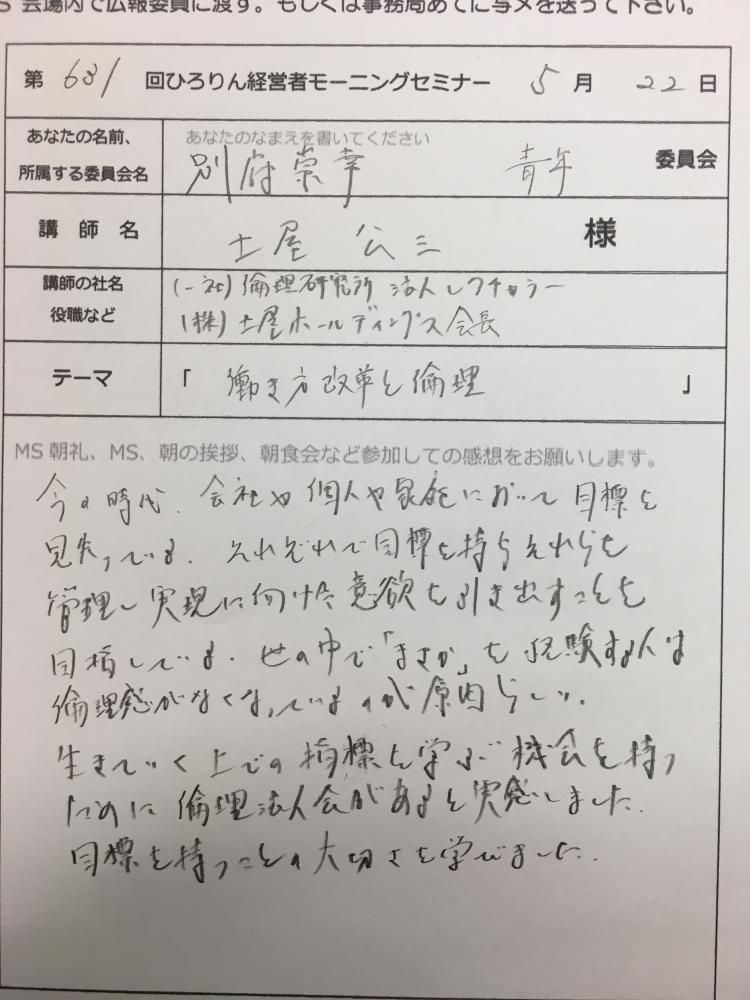 会場内で広報委員に渡す。もしくは事務局あてに写メを送って下さい。
第 631 回ひろりん経営者モーニングセミナー 5 月 22 日
あなたの名前、
所属する委員会名
あなたのなまえを書いてください
別府崇幸 青年 委員会
講師名 土屋 公三 様
講師の社名
役職など
(一社)倫理研究所 法人レクチャラー
(株)土屋ホールディングス会長
テーマ 「 働き方改革と倫理 」
MS朝礼、MS、朝の挨拶、朝食会など参加しての感想をお願いします。
今の時代、会社や個人や家族において目標を
見失っている。それぞれで目標を持ちそれらを
管理し実現に向けた意欲を引き出すことを
目指している。世の中で「まさか」を経験する人は
倫理感がなくなっているのが原因らしい。
生きていく上での指標を学ぶ機会を持つ
ために倫理法人会があると実感しました。
目標を持つことの大切さを学びました。